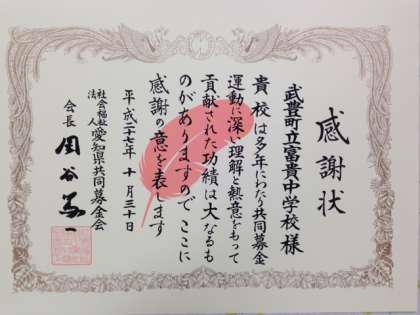 感謝状
武豊町立富貴中学校様
貴校は多年にわたり共同募金
運動に深い理解と熱意をもって
貢献された功績は大なるも
のがありますのでここに
感謝の意を表します
平成二十七年 十月三十日
社会福祉法人 愛知県共同募金会
会長 岡谷篤一